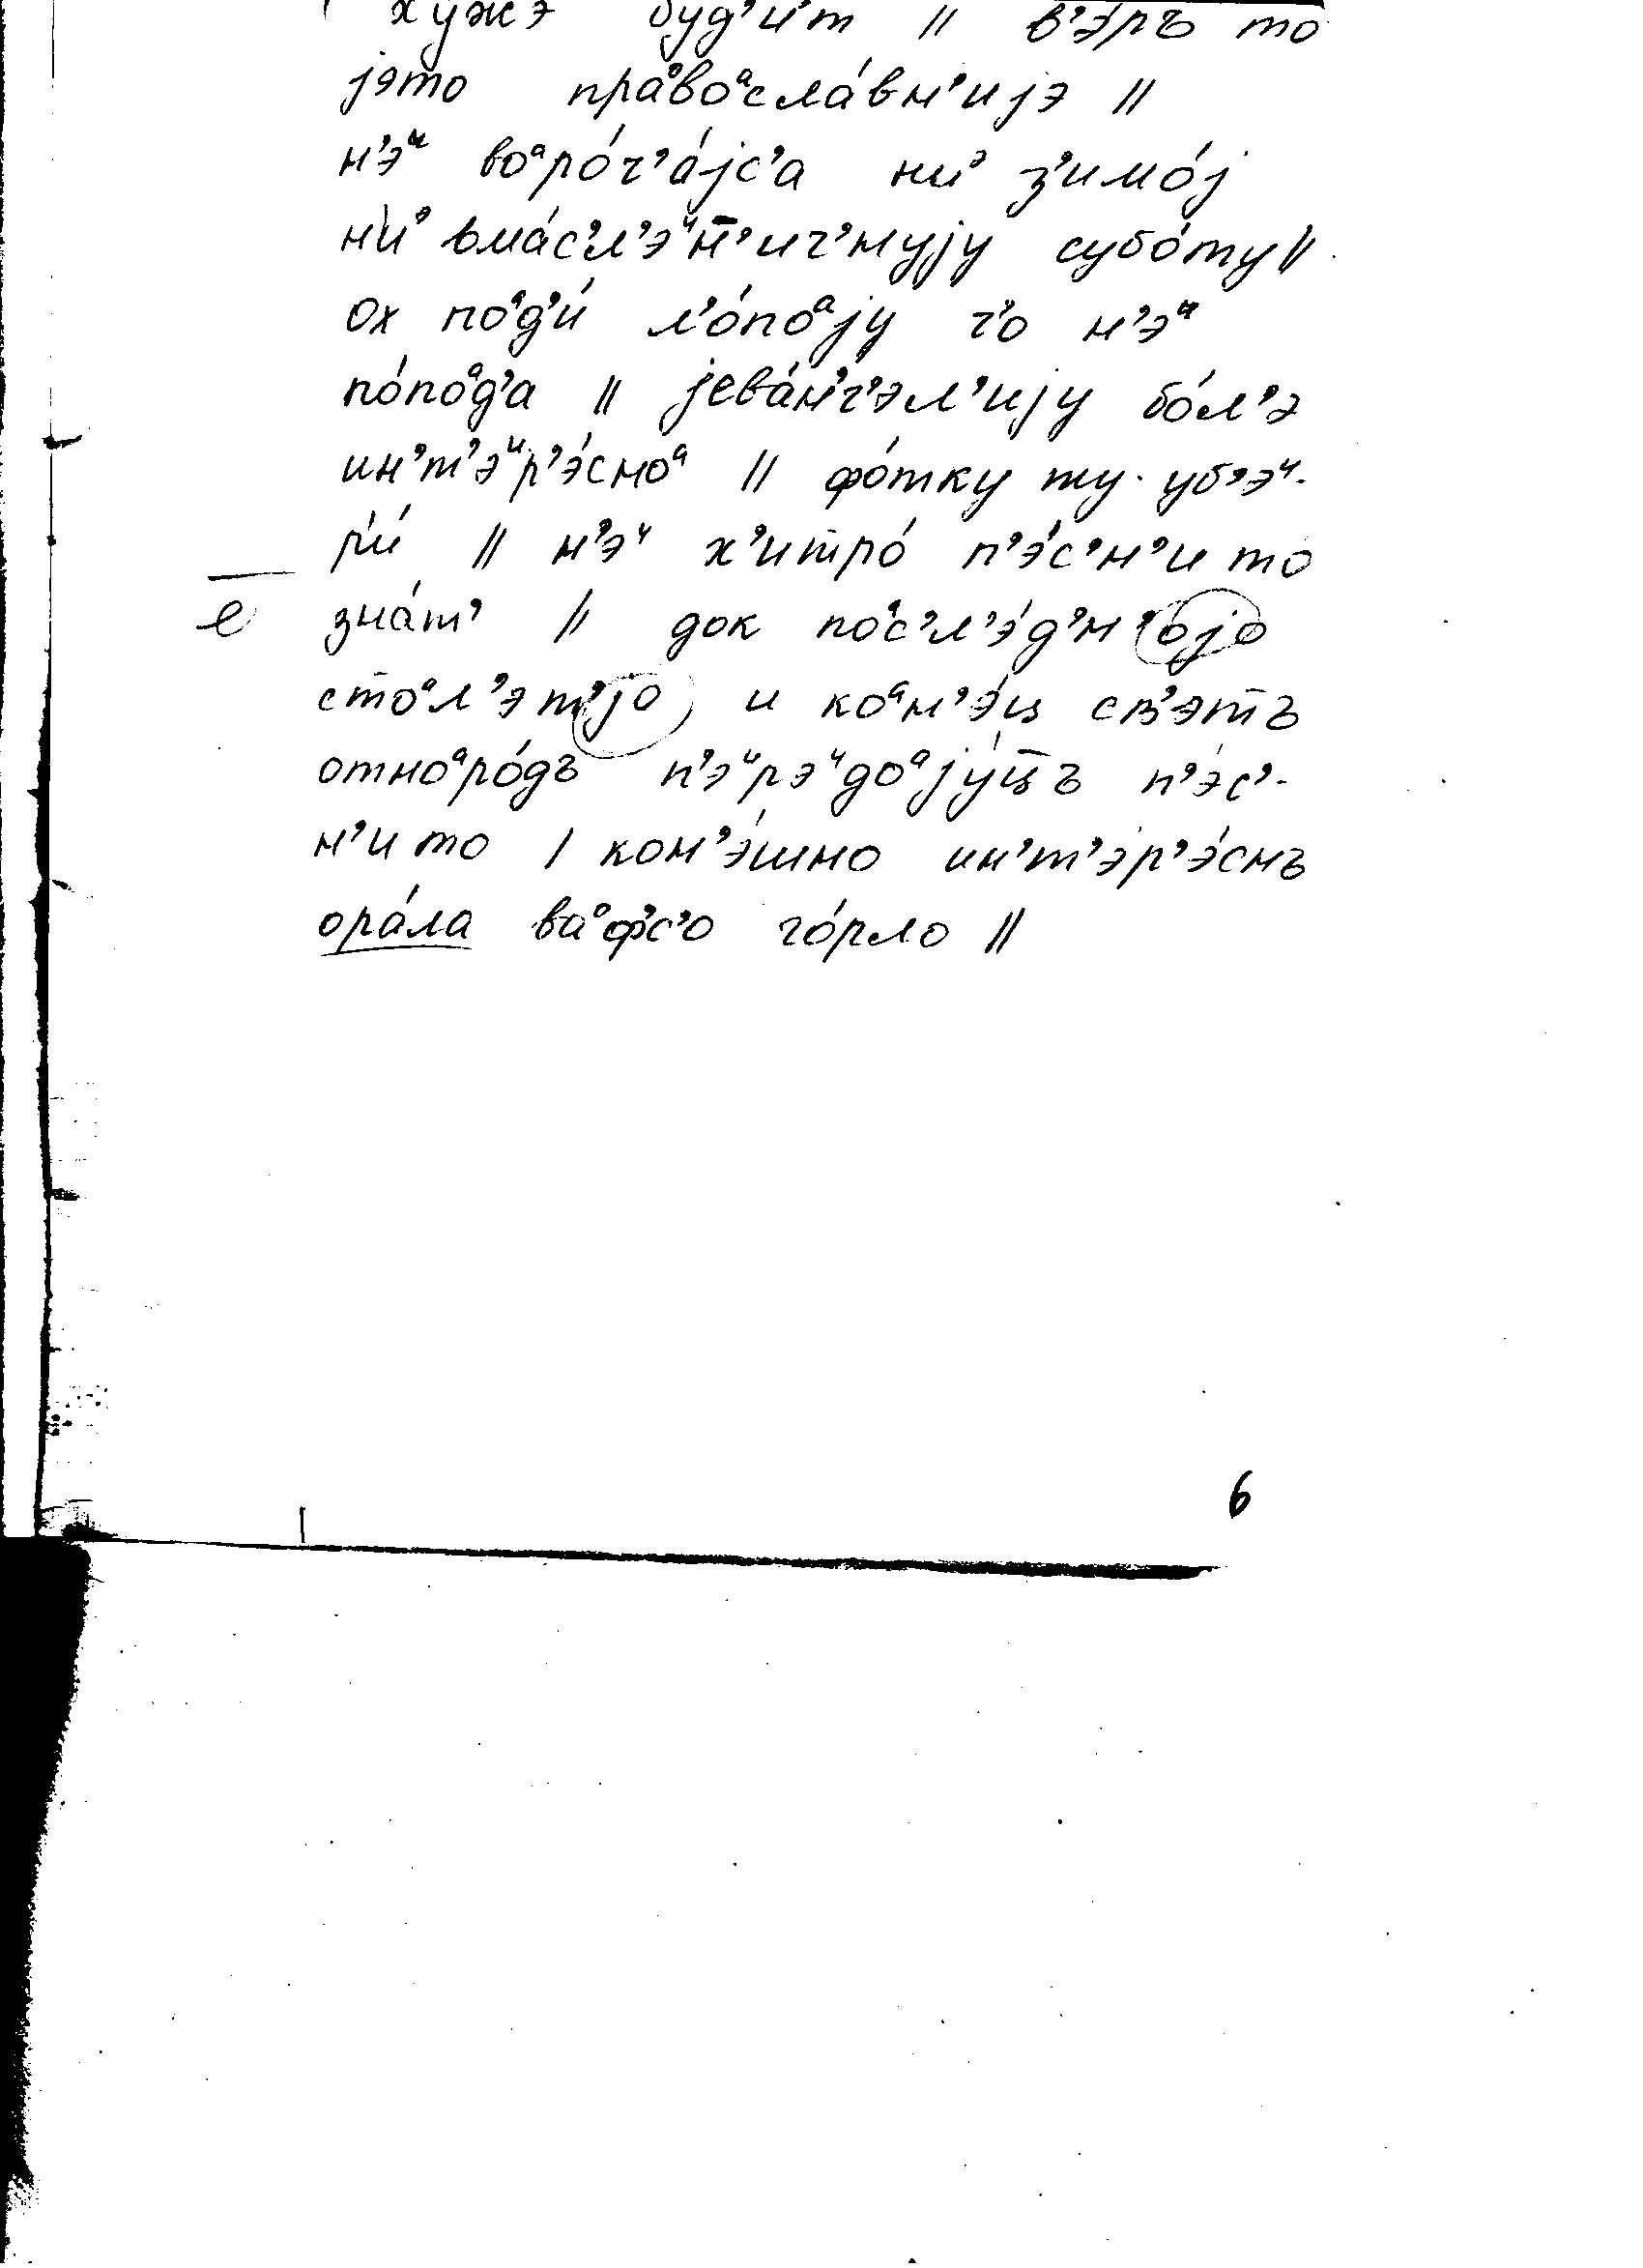 хужэ буд'ит // в'э́ръ то
јэто праᵒвоᵃсла́вн'ијэ //
н'эᶦ воᵃро́ч'áјс'а ни з'имо́ј
ни вма́с'л'эᶦн̄'ич'нују субо́ту //
Ох поᵃд'и́ л'о́поᵃју ч'о н'эᶦ
по́поᵃд'а // јева́н'г'эл'ију бо́л'э
ин'т'эᶦр'э́сноᵃ // фо́тку ту уб'эᶦ-
р'и́ // н'эᶦ х'итро́ п'э́с'н'и то
зна́т' // док поᵃс'л'э́д'н'ојо
е
стоᵃл'эт'јо и коᵃн'э́ц св'этъ
отноᵃро́дъ п'эᶦрэᶦдоᵃју́ц̄ъ п'э́с'-
н'и то / кон'э́шно ин'т'эр'э́снъ
ора́ла ваᵒфс'о го́рло //
6